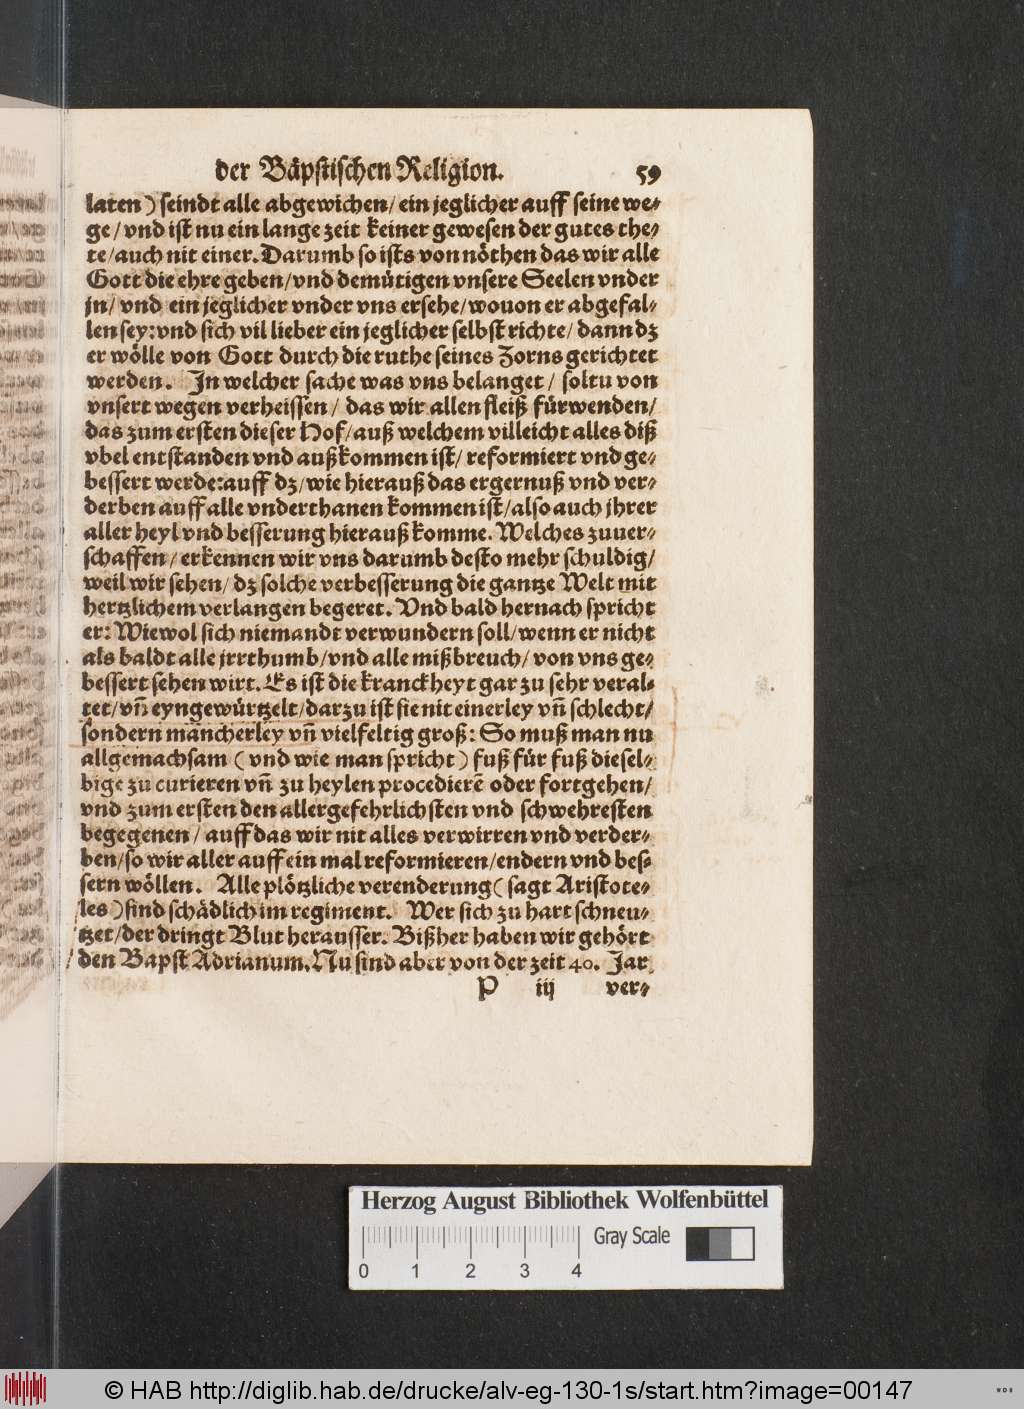 der Bäpstischen Religion. 59
laten) seindt alle abgewichen/ ein jeglicher auff seine we⸗
ge/ vnd ist nu ein lange zeit keiner gewesen der gutes the⸗
te/ auch nit einer. Darumb so ists von nöthen das wir alle
Gott die ehre geben/ vnd demütigen vnsere Seelen vnder
jn/ vnd ein jeglicher vnder vns ersehe/ wouon er abgefal⸗
len sey: vnd sich vil lieber ein jeglicher selbst richte/ dann dz
er wölle von Gott durch die ruthe seines Zorns gerichtet
werden. In welcher sache was vns belanget/ soltu von
vnsert wegen verheissen/ das wir allen fleiß fürwenden/
das zum ersten dieser Hof/ auß welchem villeicht alles diß
vbel entstanden vnd außkommen ist/ reformiert vnd ge⸗
bessert werde: auff dz/ wie hierauß das ergernuß vnd ver⸗
derben auff alle vnderthanen kommen ist/ also auch jhrer
aller heyl vnd besserung hierauß komme. Welches zuuer⸗
schaffen/ erkennen wir vns darumb desto mehr schuldig/
weil wir sehen/ dz solche verbesserung die gantze Welt mit
hertzlichem verlangen begeret. Vnd bald hernach spricht
er: Wiewol sich niemandt verwundern soll/ wenn er nicht
als baldt alle jrrthumb/ vnd alle mißbreuch/ von vns ge⸗
bessert sehen wirt. Es ist die kranckheyt gar zu sehr veral⸗
tet/ vñ eyngewürtzelt/ darzu ist sie nit einerley vñ schlecht/
sondern mancherley vñ vielfeltig groß: So muß man nu
allgemachsam (vnd wie man spricht) fuß für fuß diesel⸗
bige zu curieren vñ zu heylen procedierē oder fortgehen/
vnd zum ersten den allergefehrlichsten vnd schwehresten
begegenen/ auff das wir nit alles verwirren vnd verder⸗
ben/ so wir aller auff ein mal reformieren/ endern vnd bes⸗
sern wöllen. Alle plötzliche verenderung (sagt Aristote⸗
les) sind schädlich im regiment. Wer sich zu hart schneu⸗
tzet/ der dringt Blut herausser. Bißher haben wir gehört
den Bapst Adrianum. Nu sind aber von der zeit 40. Jar
P iij ver⸗
Herzog August Bibliothek Wolfenbüttel
Gray Scale
0 1 2 3 4
© HAB http://diglib.hab.de/drucke/alv-eg-130-1s/start.htm?image=00147